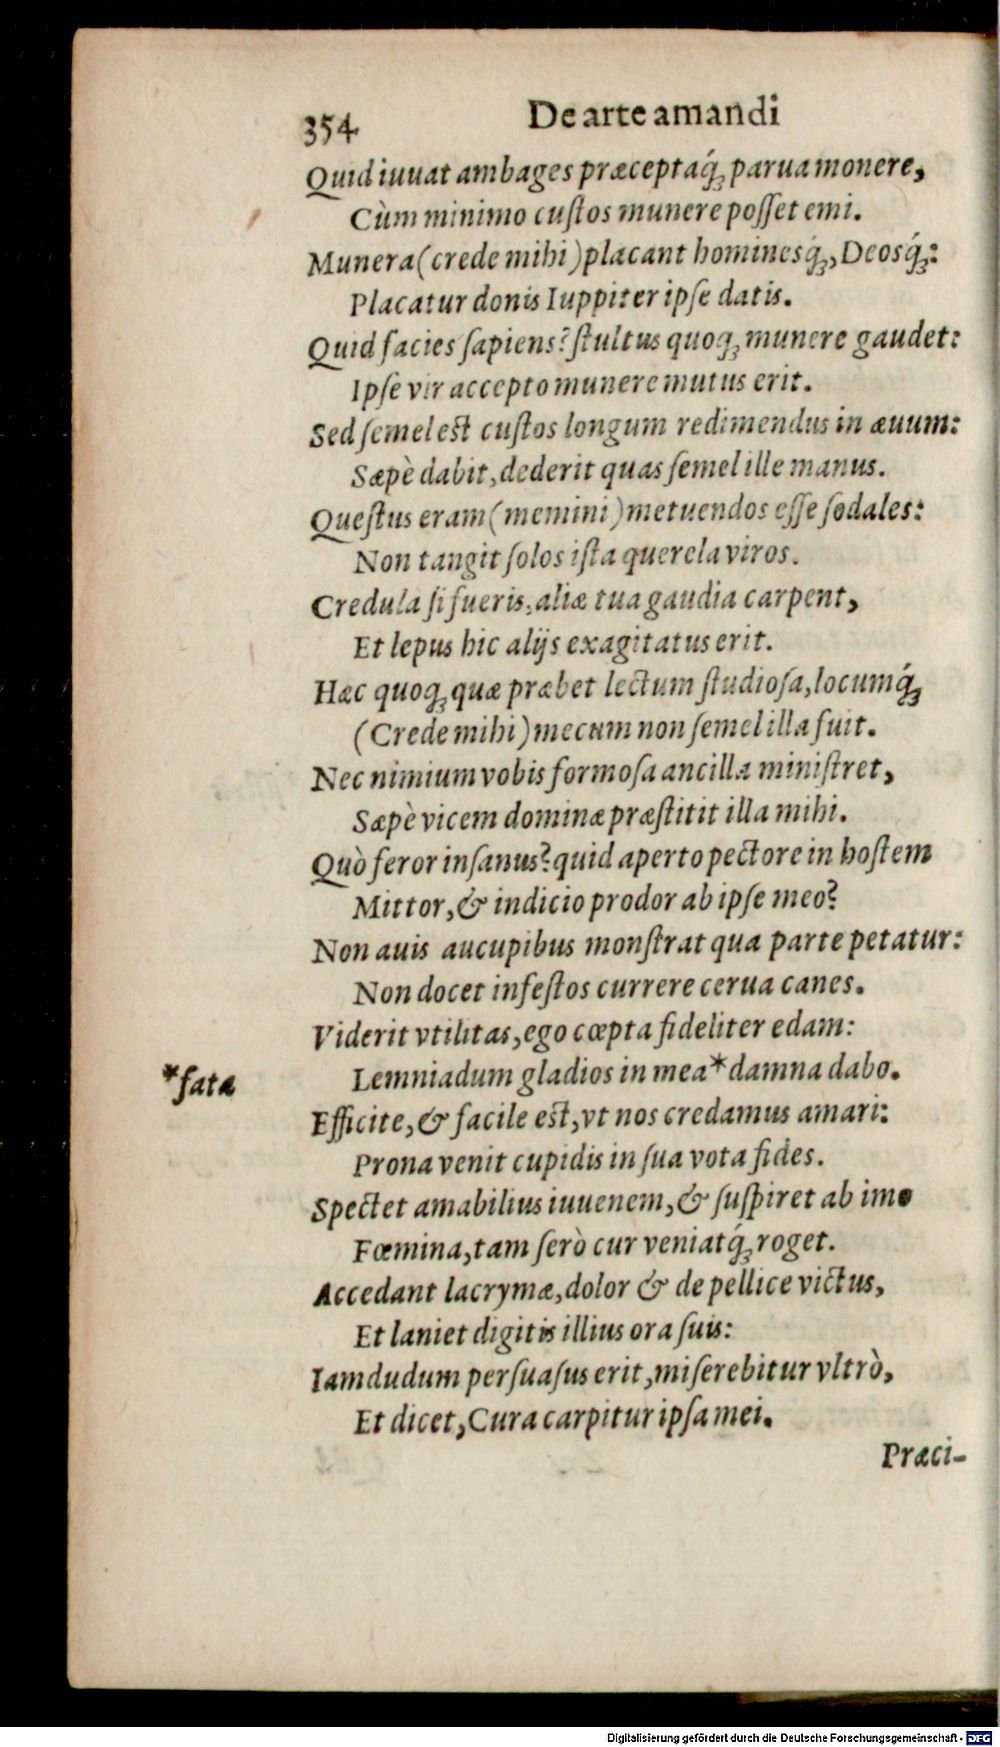 354 De arte amandi
Quid iuuat ambages præceptaq́ꝫ parua monere,
Cùm minimo cuſtos munere poſſet emi.
Munera (crede mihi) placant hominesq́ꝫ, Deosq́ꝫ:
Placatur donis Iuppiter ipſe datis.
Quid facies ſapiens? ſtultus quoqꝫ munere gaudet:
Ipſe vir accepto munere mutus erit.
Sed ſemel eſt cuſtos longum redimendus in æuum:
Sæpè dabit, dederit quas ſemel ille manus.
Queſtus eram (memini) metuendos eſſe ſodales:
Non tangit ſolos iſta querela viros.
Credula ſi fueris, aliæ tua gaudia carpent,
Et lepus hic alijs exagitatus erit.
Hæc quoqꝫ quæ præbet lectum ſtudioſa, locumq́ꝫ
(Crede mihi) mecum non ſemel illa fuit.
Nec nimium vobis formoſa ancilla miniſtret,
Sæpè vicem dominæ præſtitit illa mihi.
Quò feror inſanus? quid aperto pectore in hoſtem
Mittor, & indicio prodor ab ipſe meo?
Non auis aucupibus monſtrat qua parte petatur:
Non docet infeſtos currere cerua canes.
Viderit vtilitas, ego cœpta fideliter edam:
*fata Lemniadum gladios in mea* damna dabo.
Efficite, & facile eſt, vt nos credamus amari:
Prona venit cupidis in ſua vota fides.
Spectet amabilius iuuenem, & ſuſpiret ab imo
Fœmina, tam ſerò cur veniatq́ꝫ roget.
Accedant lacrymæ, dolor & de pellice victus,
Et laniet digitis illius ora ſuis:
Iamdudum perſuaſus erit, miſerebitur vltrò,
Et dicet, Cura carpitur ipſa mei.
Præci-
Digitalisierung gefördert durch die Deutsche Forschungsgemeinschaft - DFG